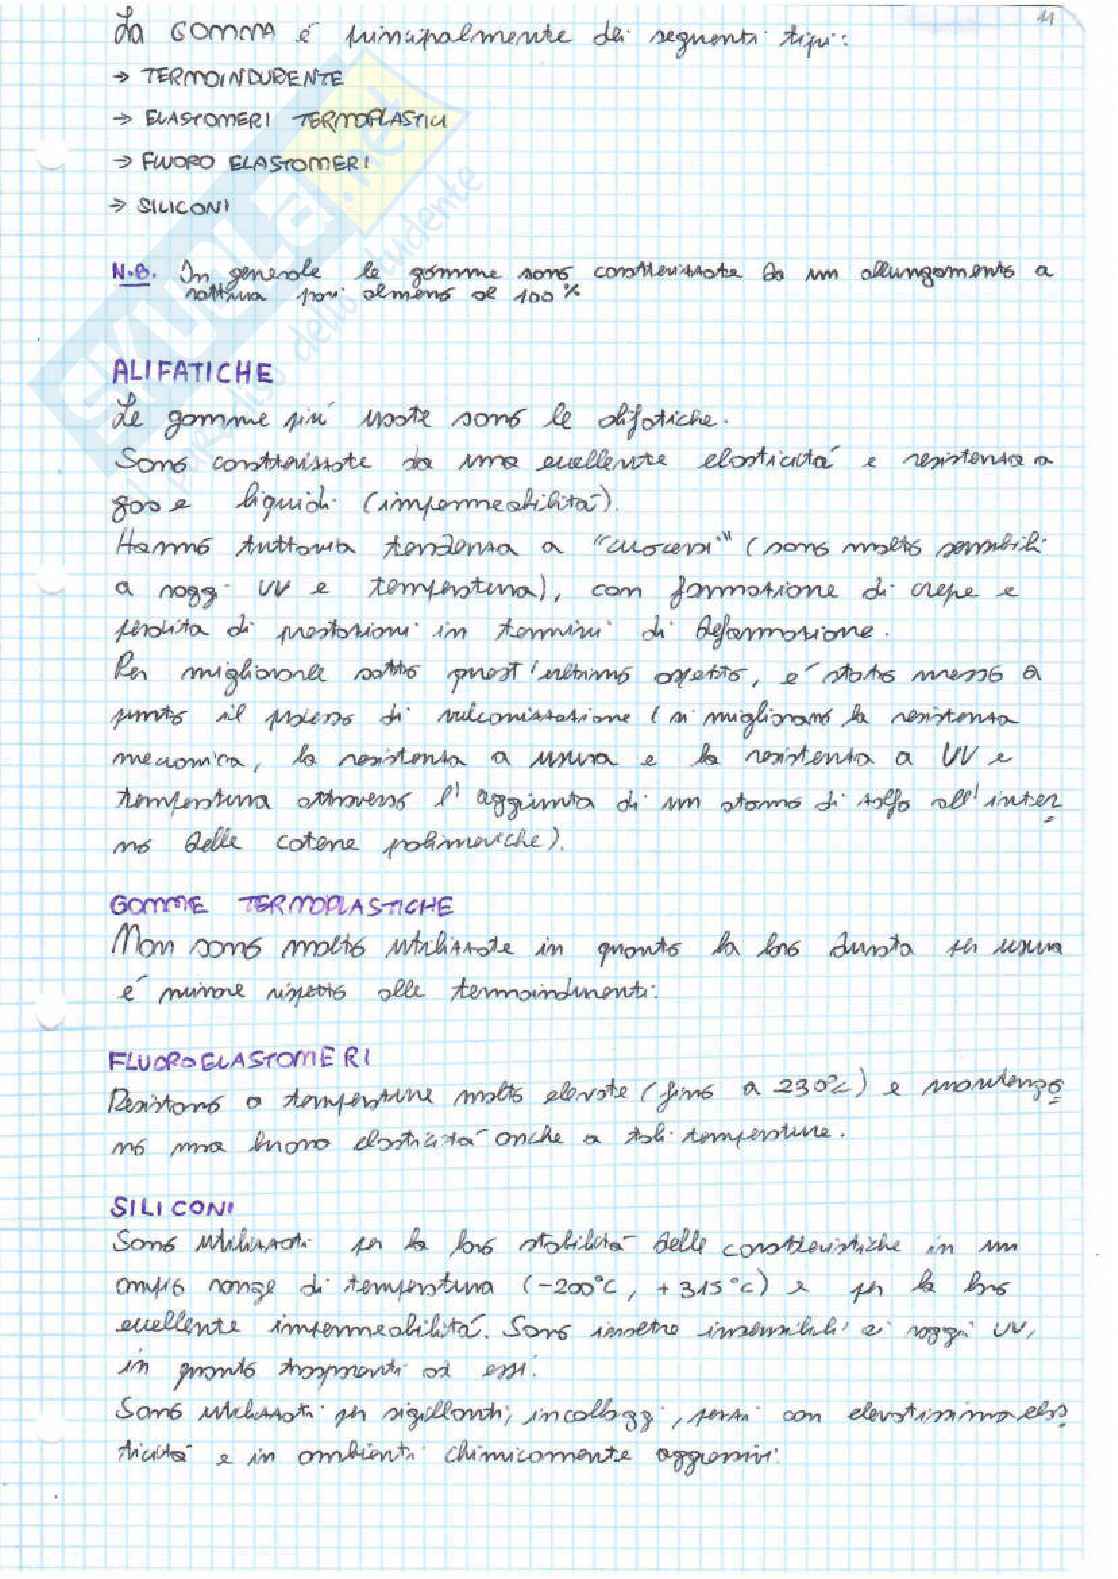 11
La GOMMA é principalmente dei seguenti tipi:
→ TERMOINDURENTE
→ ELASTOMERI TERMOPLASTICI
→ FLUORO ELASTOMERI
→ SILICONI
N.B. In generale le gomme sono caratterizzate da un allungamento a
rottura pari almeno al 100%
ALIFATICHE
Le gomme piú usate sono le alifatiche.
Sono caratterizzate da una eccellente elasticitá e resistenza a
gas e liquidi (impermeabilitá).
Hanno tuttavia tendenza a "cuocersi" (sono molto sensibili
a raggi UV e temperatura), con formazione di crepe e
perdita di prestazioni in termini di deformazione.
Per migliorarle sotto quest'ultimo aspetto, é stato messo a
punto il processo di vulcanizzazione (si migliorano la resistenza
meccanica, la resistenza a usura e la resistenza a UV e
temperatura attraverso l'aggiunta di un atomo di zolfo all'inter
no delle catene polimeriche).
GOMME TERMOPLASTICHE
Non sono molto utilizzate in quanto la loro durata ad usura
é minore rispetto alle termoindurenti.
FLUOROELASTOMERI
Resistono a temperature molto elevate (fino a 230°C) e mantengo
no una buona elasticitá anche a tali temperature.
SILICONI
Sono utilizzati per la loro stabilitá delle caratteristiche in un
ampio range di temperatura (-200°C, +315°C) e per la loro
eccellente impermeabilitá. Sono inoltre insensibili ai raggi UV,
in quanto trasparenti ad essi.
Sono utilizzati per sigillanti, incollaggi, pezzi con elevatissima elas
ticitá e in ambienti chimicamente aggressivi.